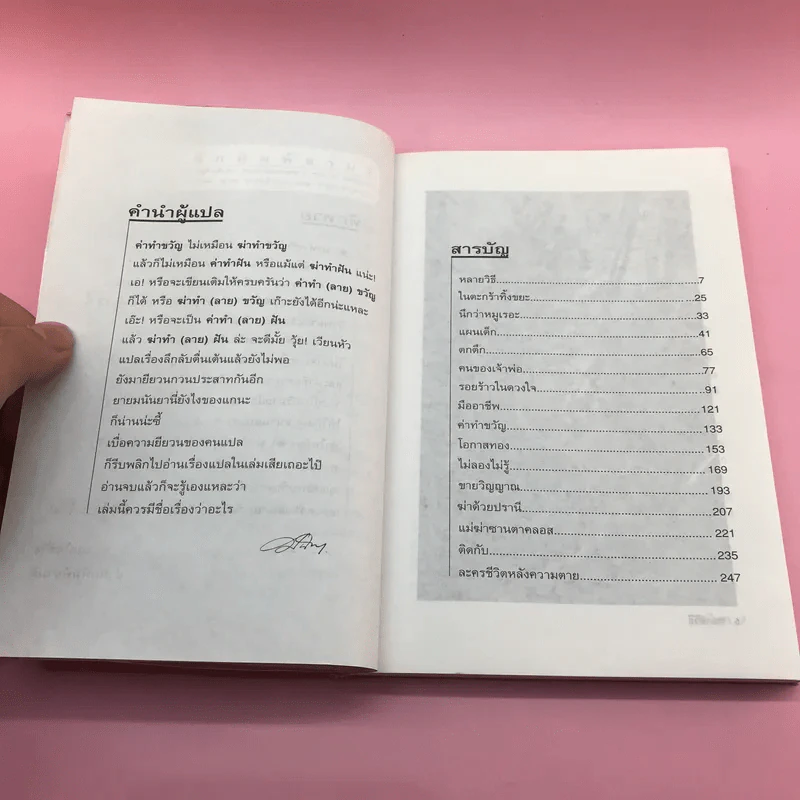 คำนำผู้แปล
ค่าทำขวัญ ไม่เหมือน ฆ่าทำขวัญ
แล้วก็ไม่เหมือน ค่าทำฝัน หรือแม้แต่ ฆ่าทำฝัน แน่ะ!
เอ! หรือจะเขียนเติมให้ครบครันว่า ค่าทำ (ลาย) ขวัญ
ก็ได้ หรือ ฆ่าทำ (ลาย) ขวัญ เก๊าะยังได้อีกน่ะแหละ
เอ๊ะ! หรือจะเป็น ค่าทำ (ลาย) ฝัน
แล้ว ฆ่าทำ (ลาย) ฝัน ล่ะ จะดีมั้ย วุ้ย! เวียนหัว
แปลเรื่องลึกลับตื่นเต้นแล้วยังไม่พอ
ยังมายียวนกวนประสาทกันอีก
ยายมนันยานี่ยังไงของแกนะ
ก็น่านน่ะซี้
เบื่อความยียวนของคนแปล
ก็รีบพลิกไปอ่านเรื่องแปลในเล่มเสียเถอะไป๊
อ่านจบแล้วก็จะรู้เองแหละว่า
เล่มนี้ควรมีชื่อเรื่องว่าอะไร
สารบัญ
หลายวิธี....7
ในตะกร้าทิ้งขยะ....25
นึกว่าหมูเรอะ....33
แผนเด็ก....41
ตกตึก....65
คนของเจ้าพ่อ....77
รอยร้าวในดวงใจ....91
มืออาชีพ....121
ค่าทำขวัญ....133
โอกาสทอง....153
ไม่ลองไม่รู้....169
ขายวิญญาณ....193
ฆ่าด้วยปรานี....207
แม่ฆ่าซานตาคลอส....221
ติดกับ....235
ละครชีวิตหลังความตาย....247